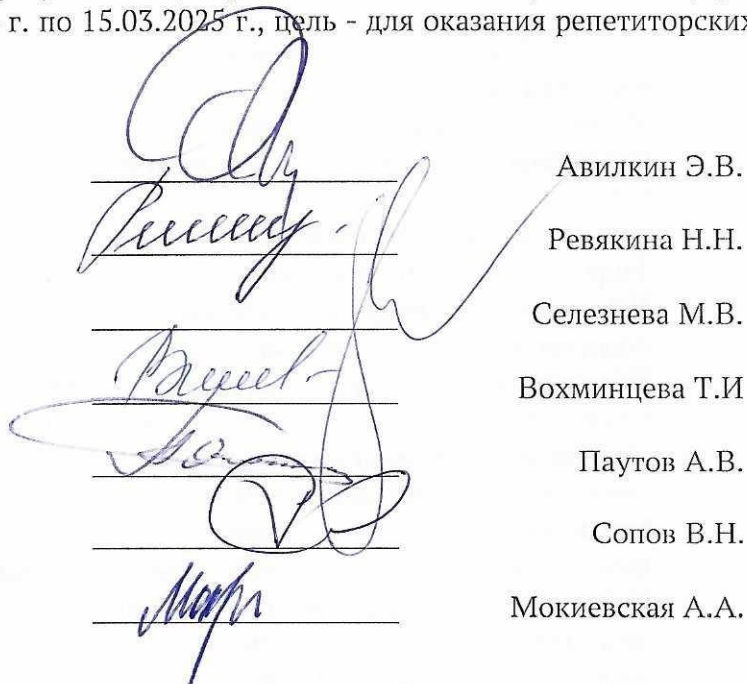 г. по 15.03.2025 г., цель - для оказания репетиторских
Авилкин Э.В.
Ревякина Н.Н.
Селезнева М.В.
Вохминцева Т.И
Паутов А.В.
Сопов В.Н.
Мокиевская А.А.